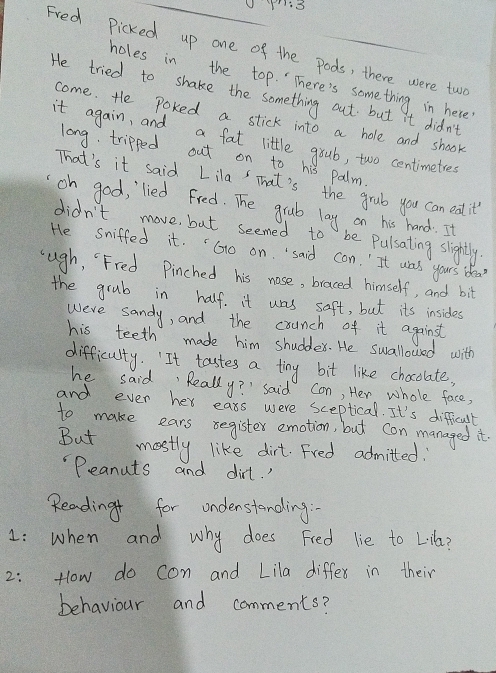 ph:3
Fred Picked up one of the Pods, there were two
holes in the top. 'There's something in here'
He tried to shake the something out. but it didn't
come. He Poked a stick into a hole and shook
it again, and a fat little grub, two centimetres
long. tripped out on to his Palm.
That's it said Lila 'That's the grub you can eat it'
'oh god,' lied Fred. The grub lay on his hand. It
didn't move, but seemed to be Pulsating slightly.
He sniffed it. 'Go on. 'said Con. 'It was yours idea"
"ugh, 'Fred Pinched his nose, braced himself, and bit
the grub in half. it was soft, but its insides
were sandy, and the crunch of it against
his teeth made him shudder. He swallowed with
difficulty. 'It tastes a tiny bit like chocolate,
he said 'Really?' said Con, Her whole face,
and even her ears were Sceptical. It's difficult
to make ears register emotion, but Con managed it.
But mostly like dirt. Fred admitted.'
'Peanuts and dirt.'
Reading for understanding:-
1: When and why does Fred lie to Lila?
2: How do Con and Lila differ in their
behaviour and comments?